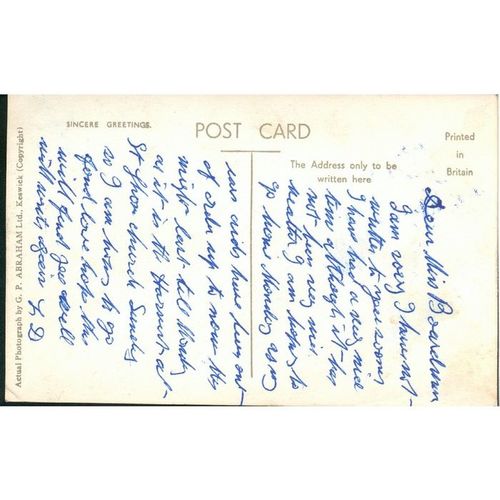 SINCERE GREETINGS.
POST CARD
The Address only to be
written here
Printed
in
Britain
Actual Photograph by G. P. ABRAHAM Ltd., Keswick (Copyright)
Dear Miss Boardman
I am sorry I have not
written to you sooner
I have had a very nice
time although it has
not been very nice
weather I am hope to
go home Monday as my
have been out
of order up to now they
might last till Monday
as it is the Harvest at
St church Sunday
so I am to go
fond love hope this
will find you well
will write again